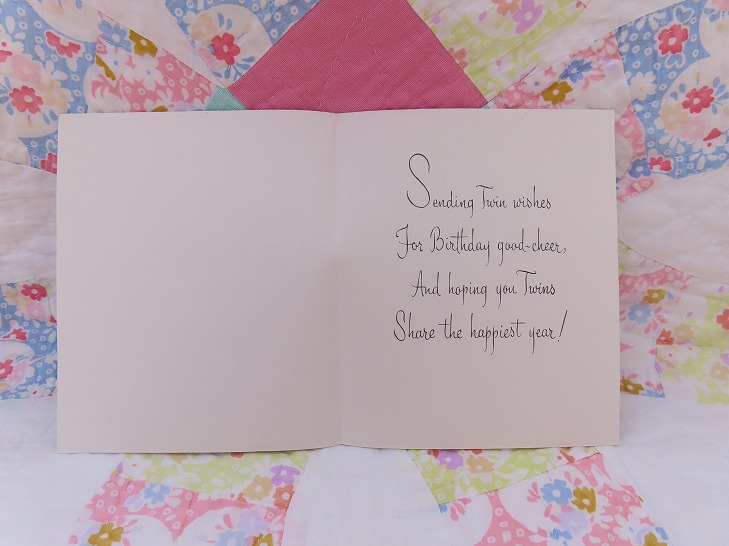 Sending Twin wishes
For Birthday good-cheer,
And hoping you Twins
Share the happiest year!